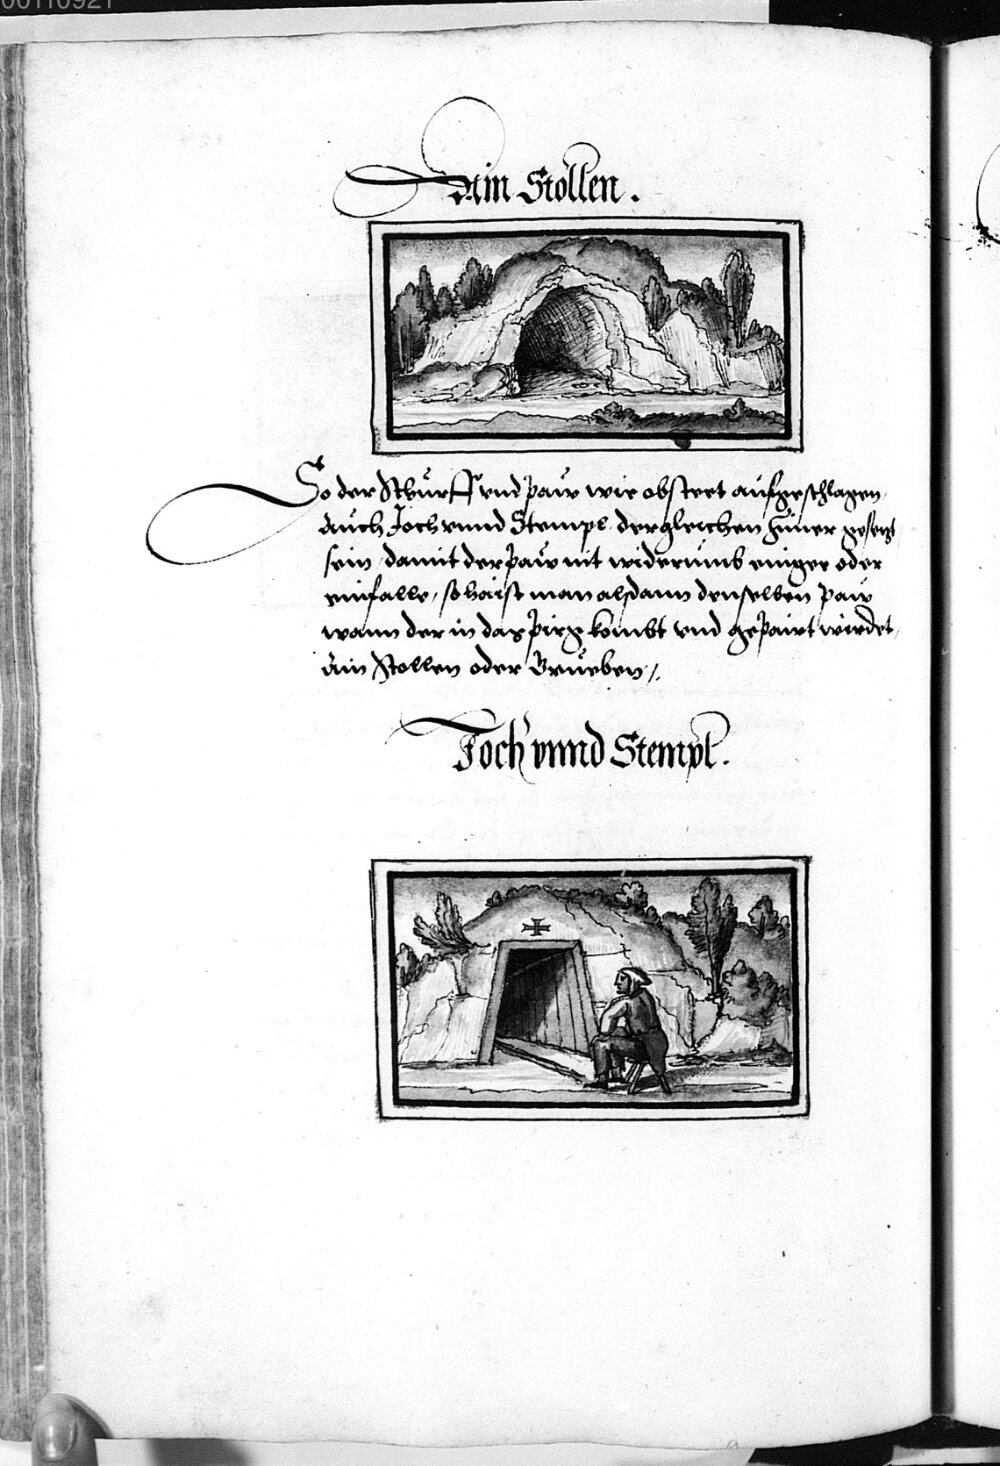 00110921
Ain Stollen.
So der Schurff vnd paw wie obsteet aufgeschlagen,
Auch Joch vnnd Stempl dergleichen hiner gesetzt
sein, damit der paw nit widerumb einge oder
einfalle, so haist man alsdann denselben paw
wann der in das pirg kombt vnd gepaut wirdet,
Ain Stollen oder Grueben /.
Joch vnnd Stempl.